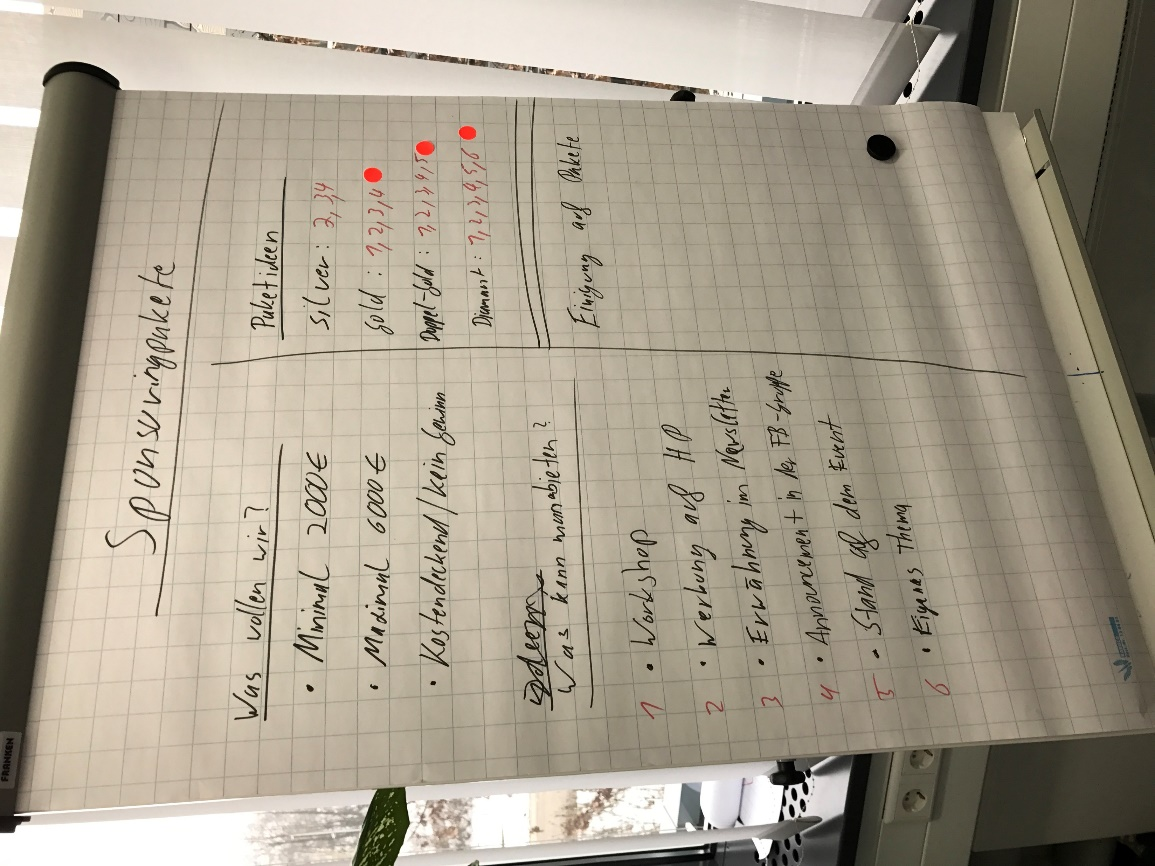 FRANKEN
Sponsoringpakete
Was wollen wir?
• Minimal 2000€
• Maximal 6000€
• Kostendeckend/kein Gewinn
Was kann man anbieten?
1 • Workshop
2 • Werbung auf HP
3 • Erwähnung im Newsletter
4 • Announcement in der FB-Gruppe
5 • Stand auf dem Event
6 • Eigenes Thema
Paketideen
Silver: 2,3,4
Gold: 1,2,3,4
Doppel-Gold: 1,2,3,4,5
Diamant: 1,2,3,4,5,6
Einigung auf Pakete